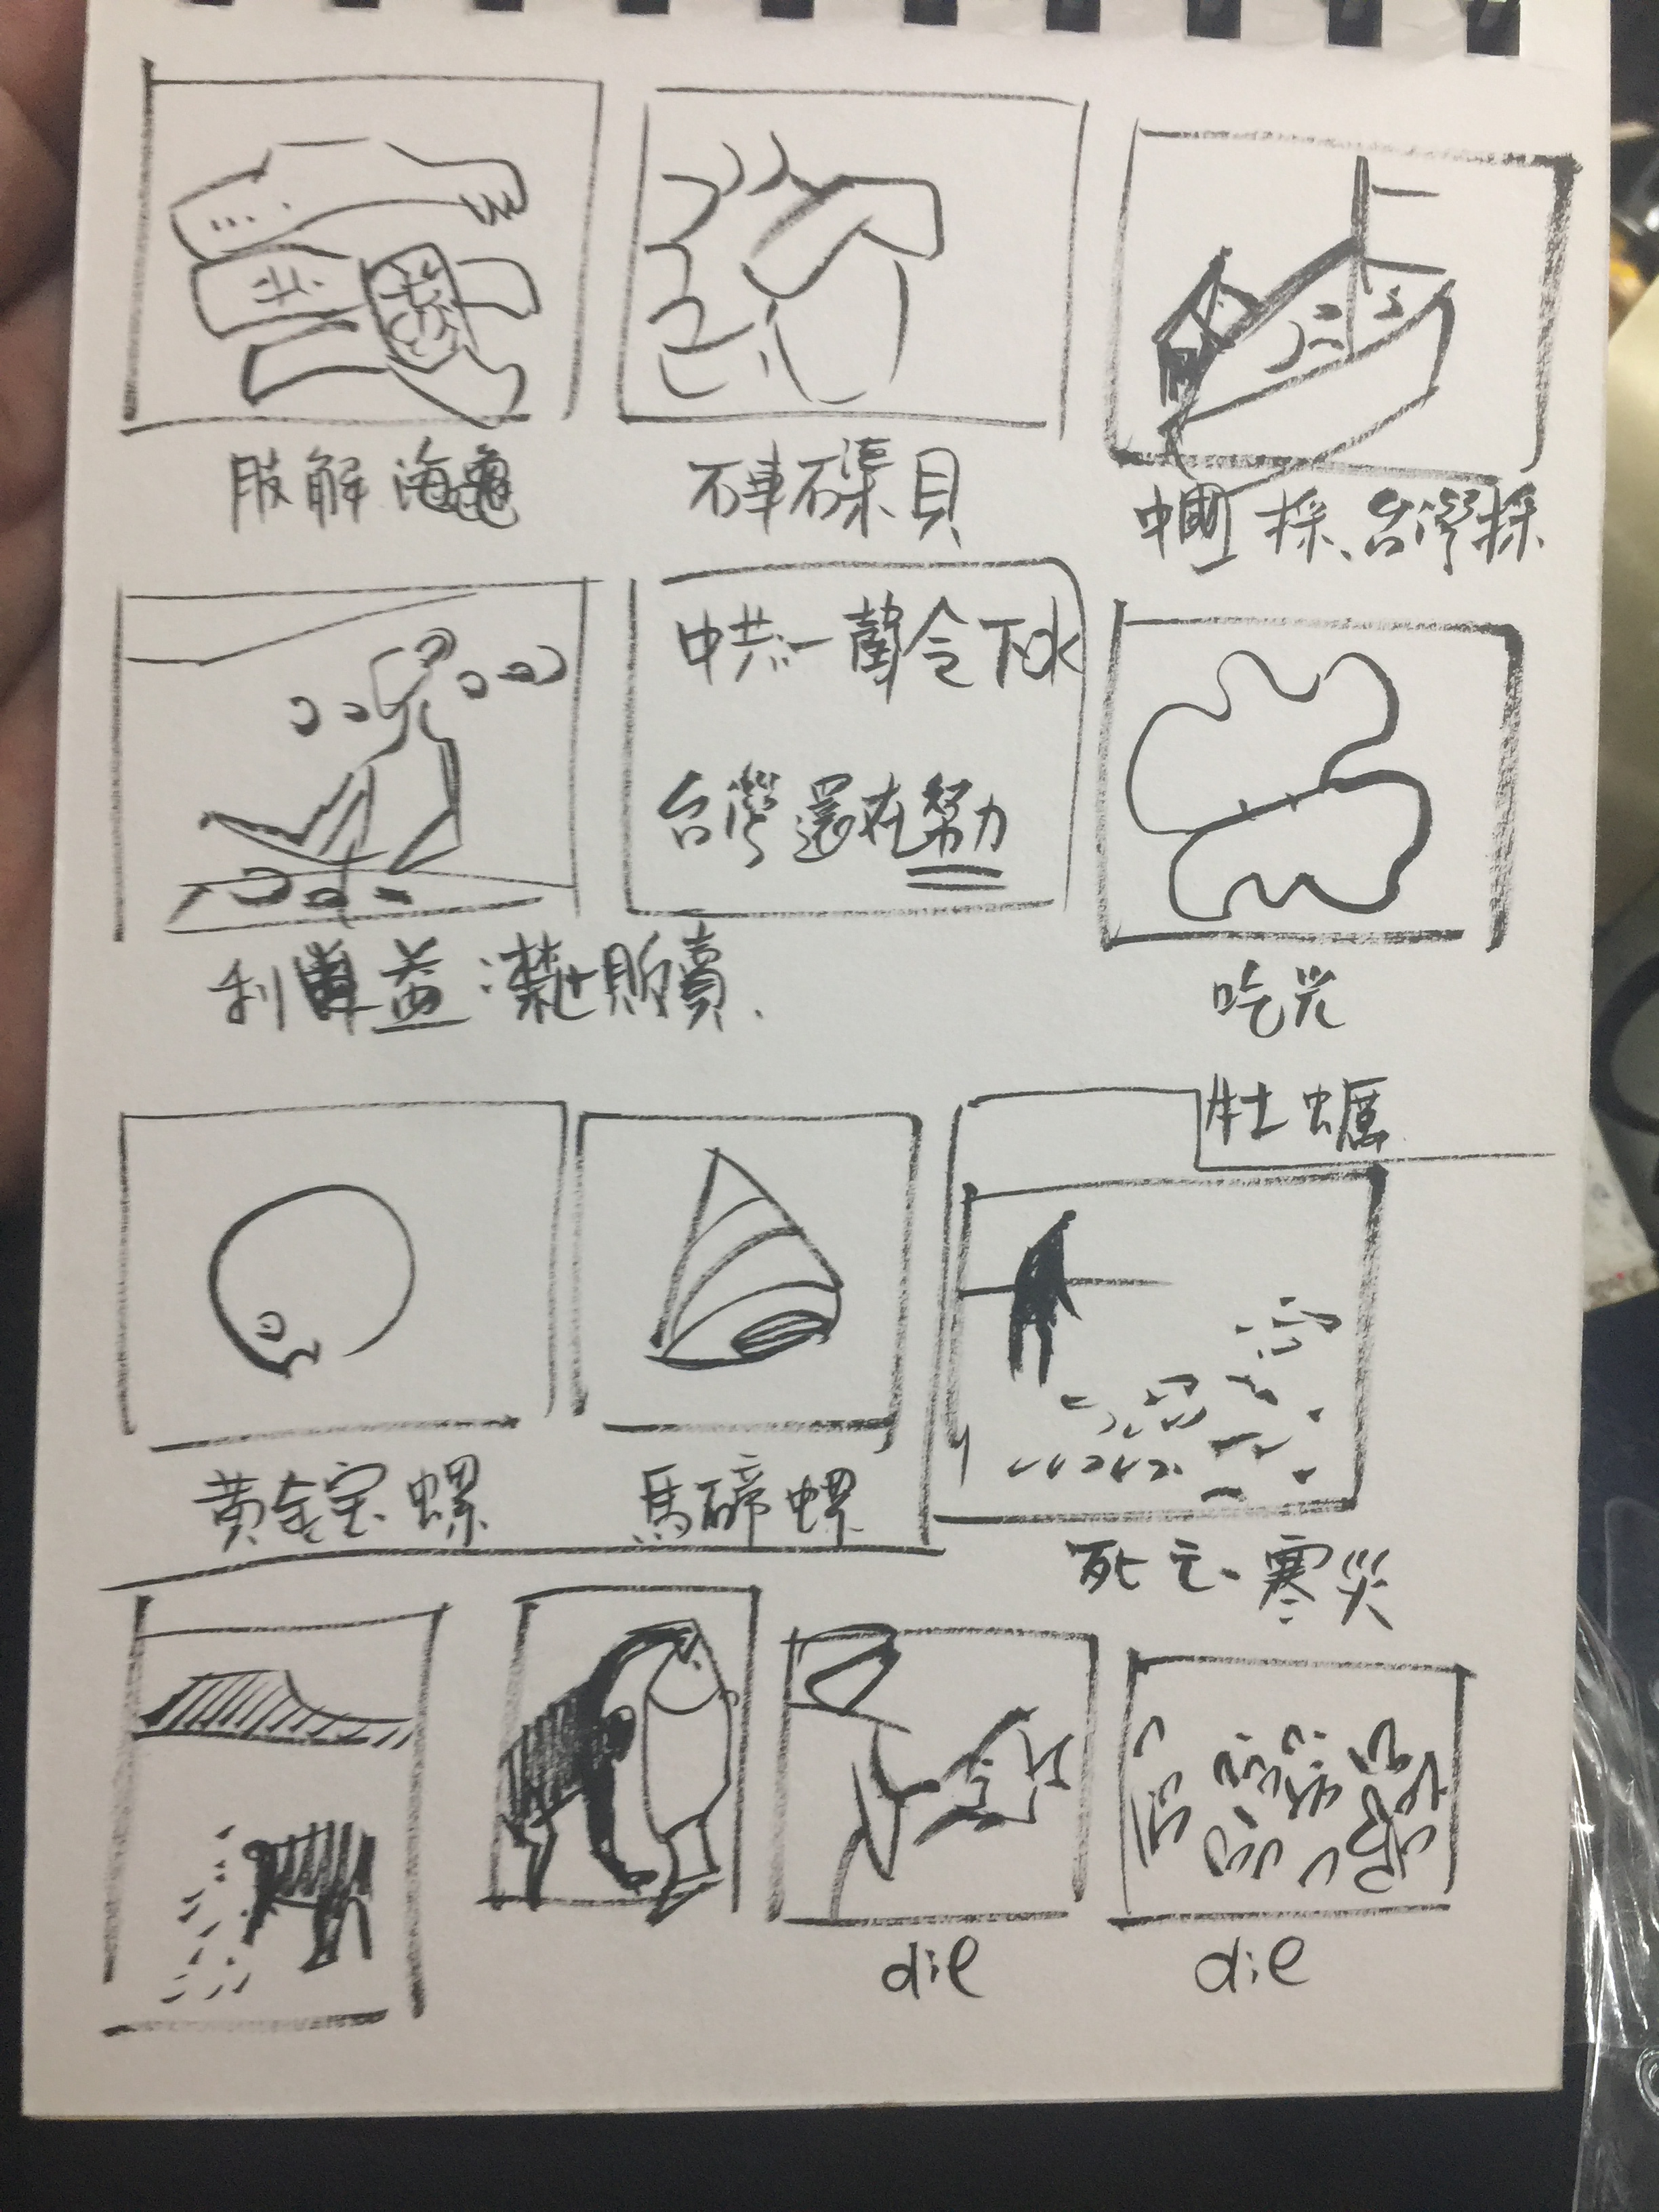 肢解海龜
硨磲貝
中國採、台灣採
中共一聲令下ok
台灣還在努力
利益：禁止販賣.
吃光
牡蠣
黃金宝螺
馬蹄螺
死亡、寒災
die
die